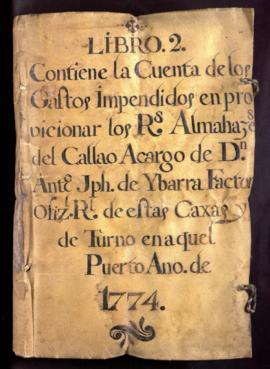 LIBRO. 2.
Contiene la Cuenta de los
Gastos Impendidos en pro
vicionar los R.s Almahaze.s
del Callao Acargo de D.n
Ant.o Jph. de Ybarra Factor
Ofiz.l R.l de estas Caxas y
de Turno en aquel
Puerto Ano. de
1774.